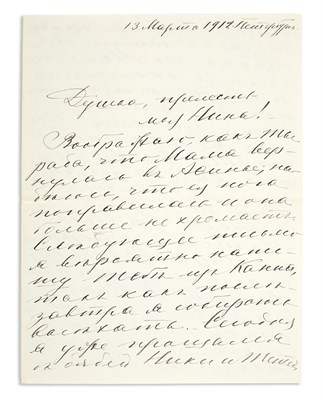 13 Марта 1912 Петербург
Душка, прелесть
моя Нина!
Воображаю, какъ ты
рада, что Мама вер-
нулась въ Афины, на-
дѣюсь, что ея нога
поправилась и она
больше не хромаетъ.
Слѣдующее письмо
я вѣроятно напи-
шу тебѣ изъ Канна,
такъ какъ после
завтра я собираюсь
выѣхать. Сегодня
я уже прощался
съ дядей Ники и тетей